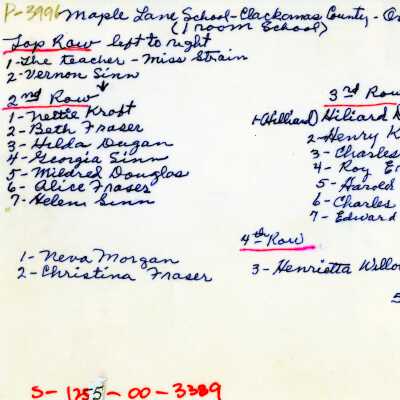 P-3996 Maple Lane School - Clackamas County - Or
(1 room School)
Top Row left to right
1- The teacher - Miss Strain
2- Vernon Sinn
2nd Row
1- Nettie Kraft
2- Beth Fraser
3- Hilda Dugan
4- Georgia Sinn
5- Mildred Douglas
6- Alice Fraser
7- Helen Sinn
3rd Row
1-(Hilliard) Hiliard D
2- Henry K
3- Charles
4- Roy E
5- Harold
6- Charles
7- Edward
4th Row
1- Neva Morgan
2- Christina Fraser
3- Henrietta Willo
5
S-1255-00-3389